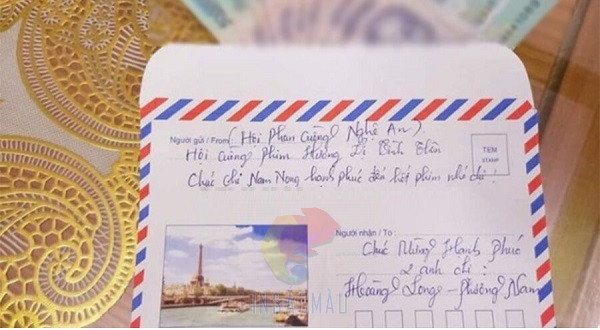 Người gửi / From: (Hội Phan Cuồng Nghệ An).
Hội Cuồng Phim Hương Vị Tình Thân
Chúc Chị Nam Nong hạnh phúc đến hết phim nhé chị!
TEM
STAMP
Người nhận / To:
Chúc Mừng Hạnh Phúc
2 anh chị:
Hoàng Long - Phương Nam
INHATMAU